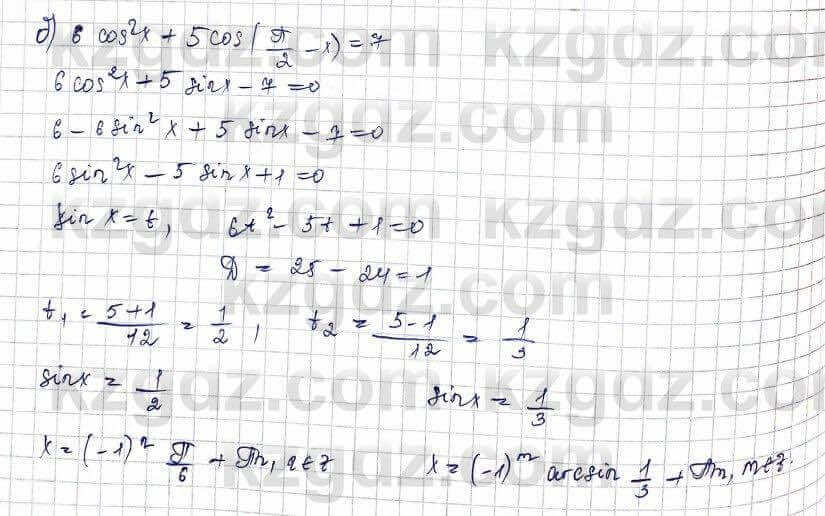 б) 6 cos²x + 5 cos(π/2 - x) = 7
6 cos²x + 5 sin x - 7 = 0
6 - 6 sin²x + 5 sin x - 7 = 0
6 sin²x - 5 sin x + 1 = 0
sin x = t, 6t² - 5t + 1 = 0
D = 25 - 24 = 1
t₁ = (5+1)/12 = 1/2, t₂ = (5-1)/12 = 1/3
sin x = 1/2 sin x = 1/3
x = (-1)ⁿ π/6 + πn, n ∈ z x = (-1)ᵐ arcsin 1/3 + πm, m ∈ z.
kzgdz.com kzgdz.com
kzgdz.com kzgdz.com
kzgdz.com kzgdz.com